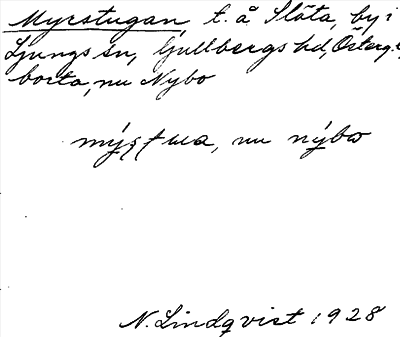 Myrstugan, t. å Släta, by i
Ljungs sn, Gullbergs hd, Österg.,
borta, nu Nybo
nu nýbω
N. Lindqvist 1928